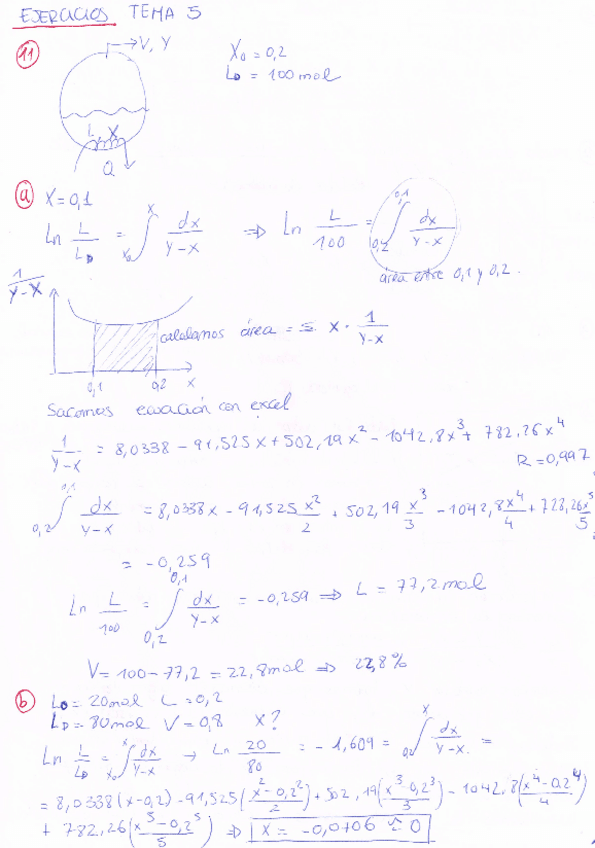 EJERCICIOS TEMA 5
11
→ V, Y
X₀ = 0,2
L₀ = 100 mol
L, X
Q
a) X = 0,1
Ln L/L₀ = ∫ₓ₀ˣ dx/(Y-X) ⇒ Ln L/100 = ∫₀,₂^0,1 dx/(Y-X)
área entre 0,1 y 0,2.
1/(Y-X)
calculamos área = Σ X · 1/(Y-X)
0,1 0,2 X
Sacamos ecuación con excel
1/(Y-X) = 8,0338 - 91,525x + 502,19x² - 1042,8x³ + 782,26x⁴
R = 0,997
∫₀,₂^0,1 dx/(Y-X) = 8,0338x - 91,525 x²/2 + 502,19 x³/3 - 1042,8 x⁴/4 + 728,26 x⁵/5
= -0,259
Ln L/100 = ∫₀,₂^0,1 dx/(Y-X) = -0,259 ⇒ L = 77,2 mol
V = 100 - 77,2 = 22,8 mol ⇒ 22,8%
b) L₀ = 20 mol L = 0,2
L₀ = 80 mol V = 0,8 X?
Ln L/L₀ = ∫ₓ₀ˣ dx/(Y-X) → Ln 20/80 = -1,609 = ∫₀,₂ˣ dx/(Y-X) =
= 8,0338(x-0,2) - 91,525((x²-0,2²)/2) + 502,19((x³-0,2³)/3) - 1042,8((x⁴-0,2⁴)/4)
+ 782,26((x⁵-0,2⁵)/5) ⇒ X = -0,0706 ≃ 0